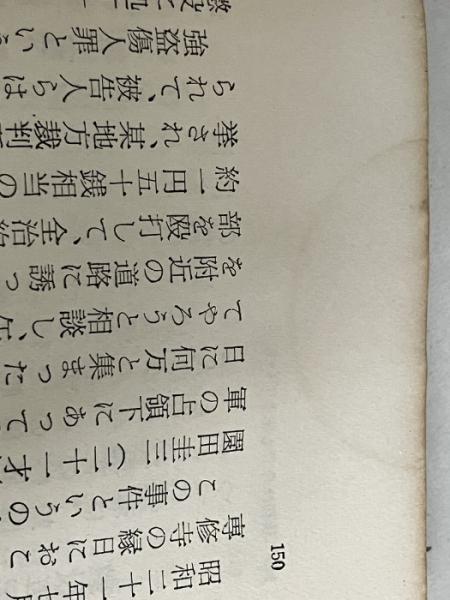 昭和二十一年七月
専修寺の縁日におこ
この事件というの
園田圭三(二十一才
軍の占領下にあって
日に何万と集まった
てやろうと相談し、
を附近の道路に誘っ
部を殴打して、全治約
約一円五十銭相当の
挙され、某地方裁判
られて、被告人らは
強盗傷人罪という
150